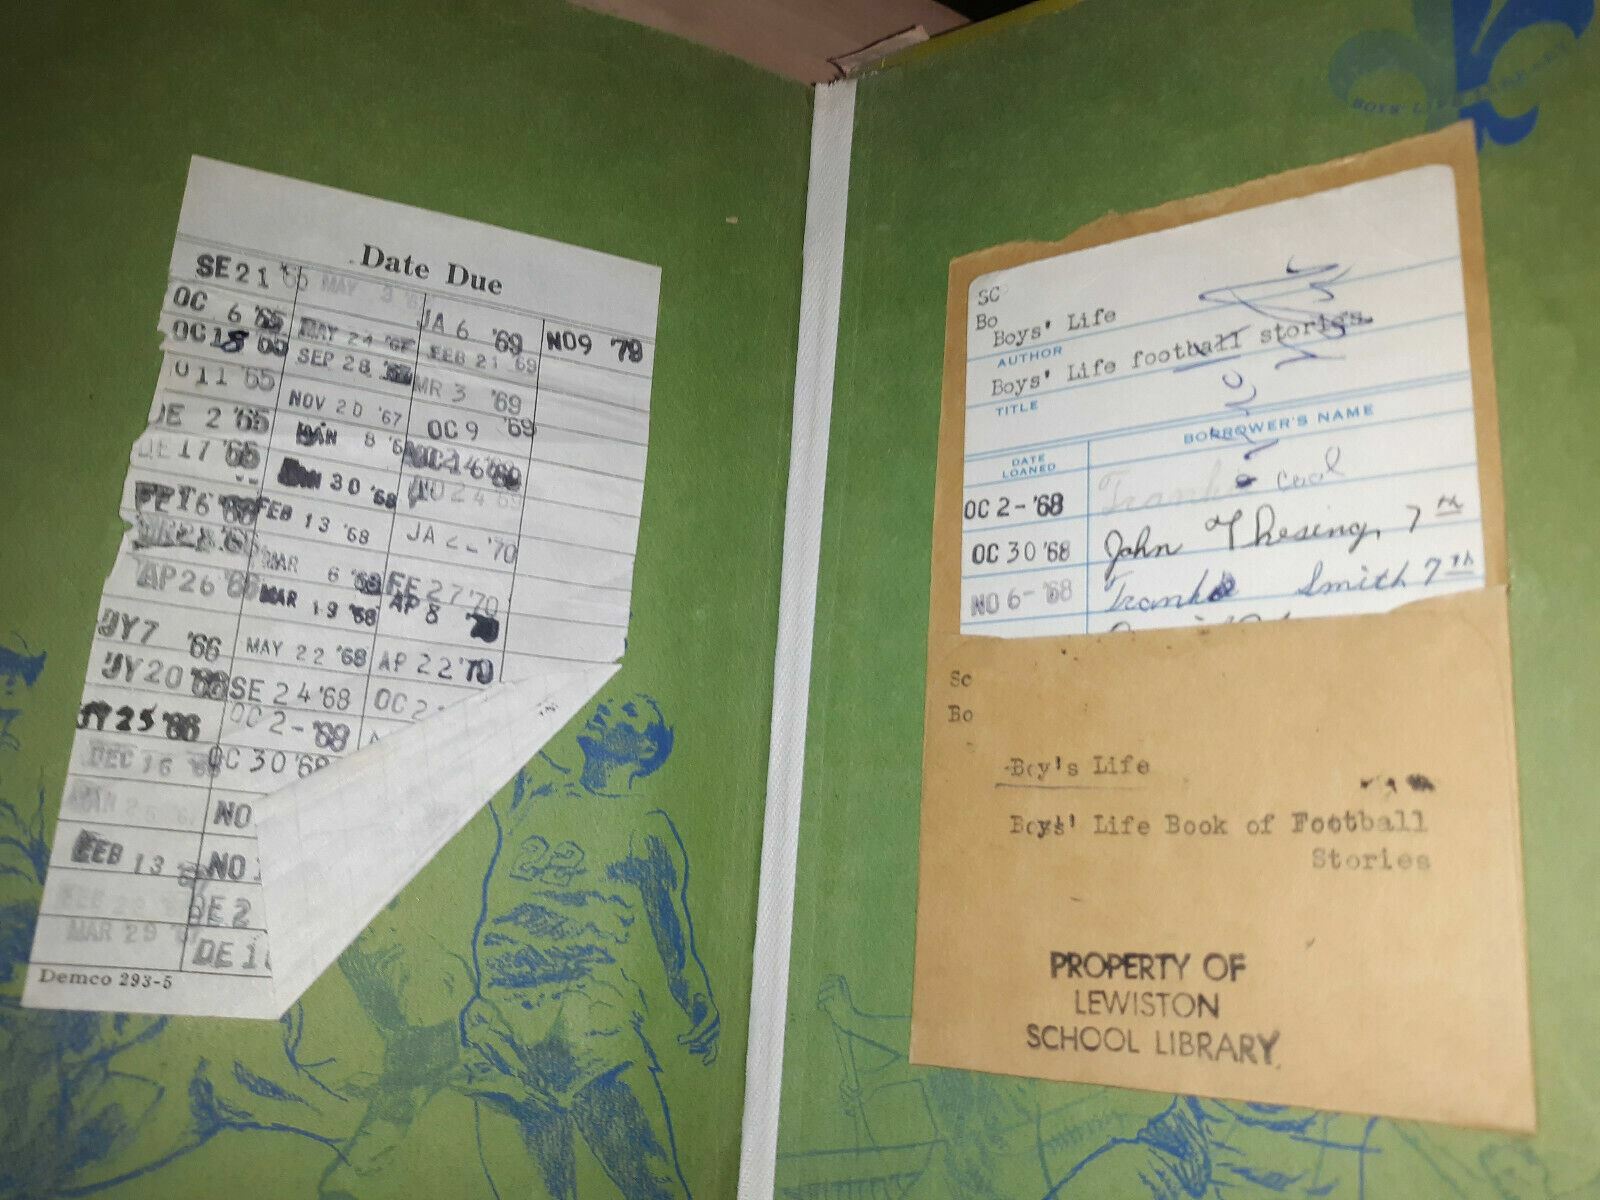 Date Due
SE 21 '65
OC 6 '65
OC 18 '65
11 '65
DE 2 '65
DE 17 '65
FE 16 '66
AP 26 '66
JY 7 '66
JY 20 '66
JY 25 '66
DEC 16 '66
FEB 13
MAR 29
MAY 3
MAY 24
SEP 28
NOV 20 '67
JAN 8 '68
JAN 30 '68
FEB 13 '68
MAR 6 '68
MAR 19 '68
MAY 22 '68
SE 24 '68
OC 2 - '68
OC 30 '68
NO
NO
DE 2
DE 1
JA 6 '69
FEB 21 '69
MR 3 '69
OC 9 '69
NO 24 69
JA 2 - '70
FE 27 '70
AP 8 70
AP 22 '70
OC 2
NO 9 '70
Demco 293-5
BOYS' LIFE LIBRARY
SC
Bo
Boys' Life
AUTHOR
Boys' Life football stories
TITLE
DATE LOANED
BORROWER'S NAME
OC 2 - '68 Frankie
OC 30 '68 John Thesing, 7th
NO 6 - '68 Frank Smith 7th
Sc
Bo
Boy's Life
Boys' Life Book of Football
Stories
PROPERTY OF
LEWISTON
SCHOOL LIBRARY